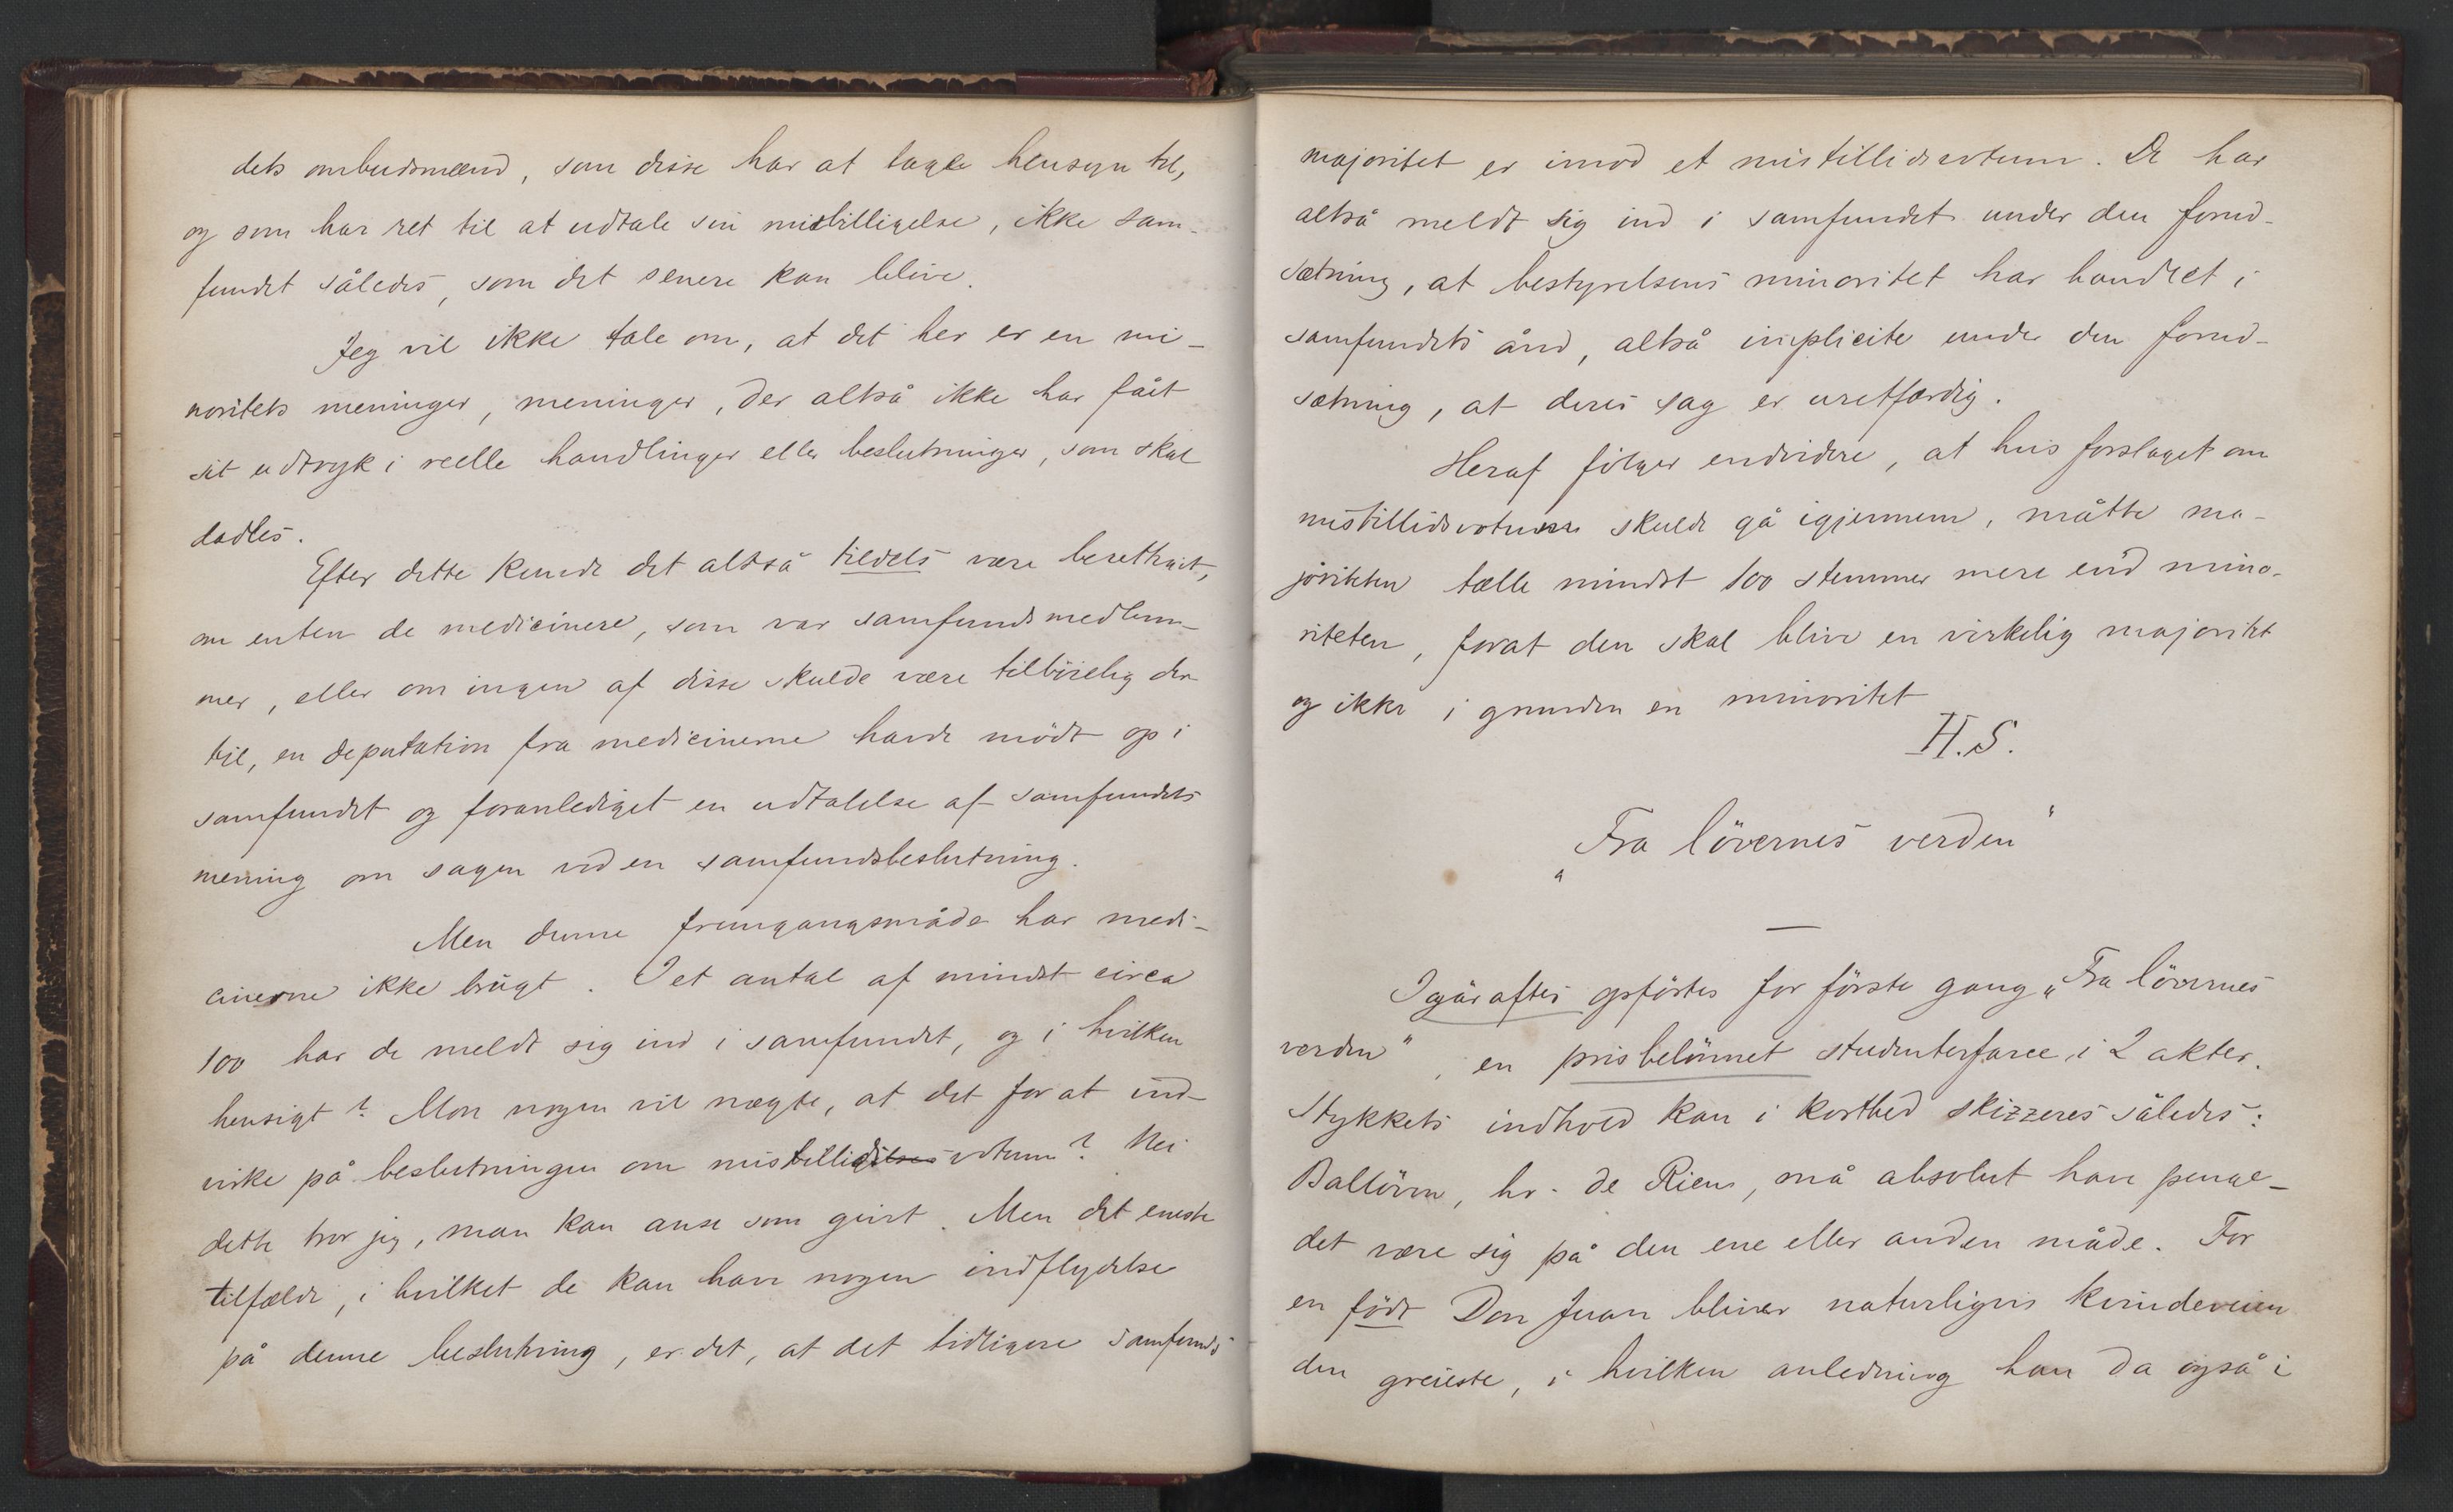 dets ombudsmænd, som disse har at tage hensyn til,
og som har ret til at udtale sin misbilligelse, ikke sam-
fundet således, som det senere kan blive.
Jeg vil ikke tale om, at det her er en mi-
noritets meninger, meninger, der altså ikke har fået
sit udtryk i reelle handlinger eller beslutninger, som skal
dadles.
Efter dette kunde det altså tildels være berettiget,
om enten de medicinere, som var samfundsmedlem-
mer, eller om ingen af disse skulde være tilböielig der-
til, en deputation fra medicinerne havde mödt op i
samfundet og foranlediget en udtalelse af samfundets
mening om sagen ved en samfundsbeslutning.
Men denne fremgangsmåde har medi-
cinerne ikke brugt. I et antal af mindst circa
100 har de meldt sig ind i samfundet, og i hvilken
hensigt? Mon nogen vil nægte, at det for at ind-
virke på beslutningen om mistillidsvotum? Nei
dette tror jeg, man kan anse som givet. Men det eneste
tilfælde, i hvilket de kan have nogen indflydelse
på denne beslutning, er det, at det tidligere samfunds
majoritet er imod et mistillidsvotum. De har
altså meldt sig ind i samfundet under den forud-
sætning, at bestyrelsens minoritet har handlet i
samfundets ånd, altså implicite under den forud-
sætning, at deres sag er uretfærdig.
Heraf fölger endvidere, at hvis forslaget om
mistillidsvotum skulde gå igjennem, måtte ma-
joriteten tælle mindst 100 stemmer mere end mino-
riteten, forat den skal blive en virkelig majoritet
og ikke i grunden en minoritet
H.S.
„Fra lövernes verden"
—
Igår aftes opförtes for förste gang „Fra lövernes
verden", en prisbelönnet studenterfarce i 2 akter.
Stykkets indhold kan i korthed skizzeres således:
Ballöven, hr. de Rien, må absolut have penge-
det være sig på den ene eller anden måde. For
en födt Don Juan bliver naturligvis kvindeveien
den greieste, i hvilken anledning han da også i